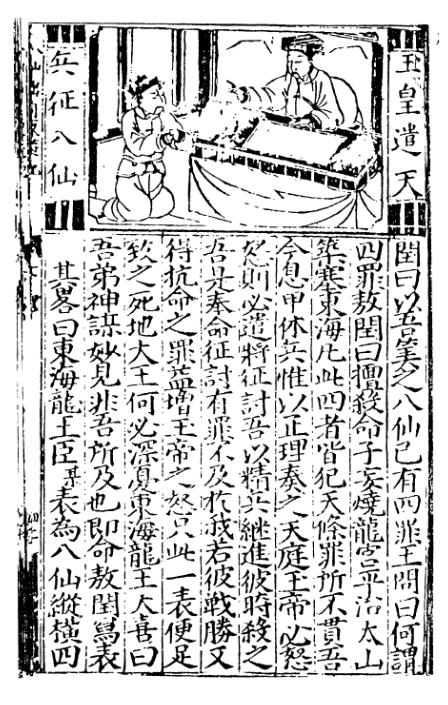 玉皇遣天
兵征八仙
閏曰以吾筆之八仙已有四罪王問曰何謂
四罪敖閏曰擅殺命子妄燒龍宮平治太山
築塞東海凡此四者皆犯天條罪所不貫吾
今息甲休兵惟以正理奏之天庭玉帝必怒
怒則必遣將征討吾以精兵継進彼時殺之
吾是奉命征討有罪不及扵我若彼戰勝又
得抗命之罪益增王帝之怒只此一表便足
致之死地大王何必深慮東海龍王大喜曰
吾弟神謀妙見非吾所及也即命敖閏寫表
其畧曰東海龍王臣某表為八仙縱橫四